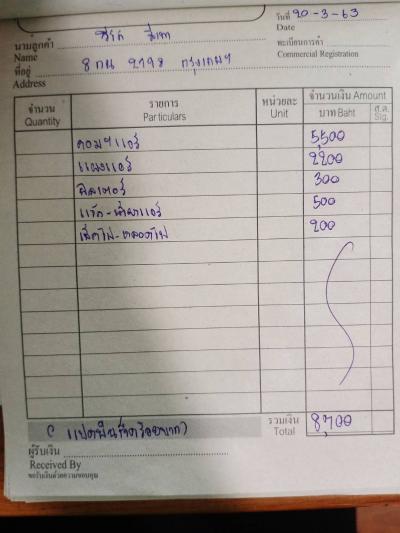 วันที่ 20-3-63
Date
นามลูกค้า
Name
ทะเบียนการค้า
Commercial Registration
ที่อยู่ 8 กน 2798 กรุงเทพฯ
Address
จำนวน รายการ หน่วยละ จำนวนเงิน Amount
Quantity Particulars Unit บาท Baht ส.ต. Stg.
คอมฯแอร์ 5,500
แผงแอร์ 2200
ฟิลเตอร์ 300
แว๊ก-น้ำยาแอร์ 500
เช็คไฟ-หลอดไฟ 200
(แปดพันเจ็ดร้อยบาท) รวมเงิน 8,700
Total
ผู้รับเงิน
Received By
ขอรับเงินด้วยความขอบคุณ